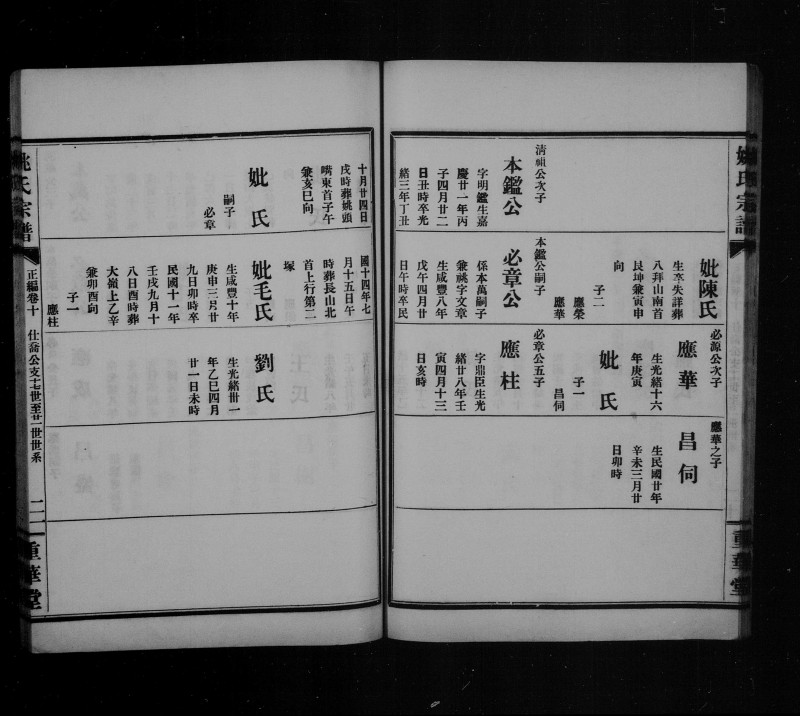 姚氏宗譜
重華堂
清禎公次子
本鑑公
字明鑑生嘉
慶廿一年丙
子四月廿二
日丑時卒光
緒三年丁丑
妣陳氏
生卒失詳葬
八拜山南首
艮坤兼寅申
向
子二
應榮
應華
本鑑公嗣子
必章公
係本萬嗣子
兼祧字文章
生咸豐八年
戊午四月廿
日午時卒民
必源公次子
應華
生光緒十六
年庚寅
妣氏
子一
昌伺
必章公五子
應柱
字鼎臣生光
緒廿八年壬
寅四月十三
日亥時
應華之子
昌伺
生民國廿年
辛未三月廿
日卯時
十月廿四日
戌時葬姚頭
嘴東首子午
兼亥巳向
妣氏
嗣子
必章
國十四年七
月十五日午
時葬長山北
首上行第二
塚
妣毛氏
生咸豐十年
庚申三月廿
九日卯時卒
民國十一年
壬戌九月十
八日酉時葬
大嶺上乙辛
兼卯酉向
子一
應柱
劉氏
生光緒卅一
年乙巳四月
廿一日未時
姚氏宗譜
正編卷十
仕喬公支十七世至廿一世世系
二一
重華堂